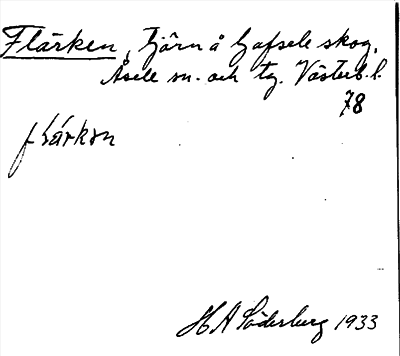 Flärken, tjärn å Gafsele skog,
Åsele sn. och tg. Västerb. l.
78
flárkɘn
H A Söderberg 1933